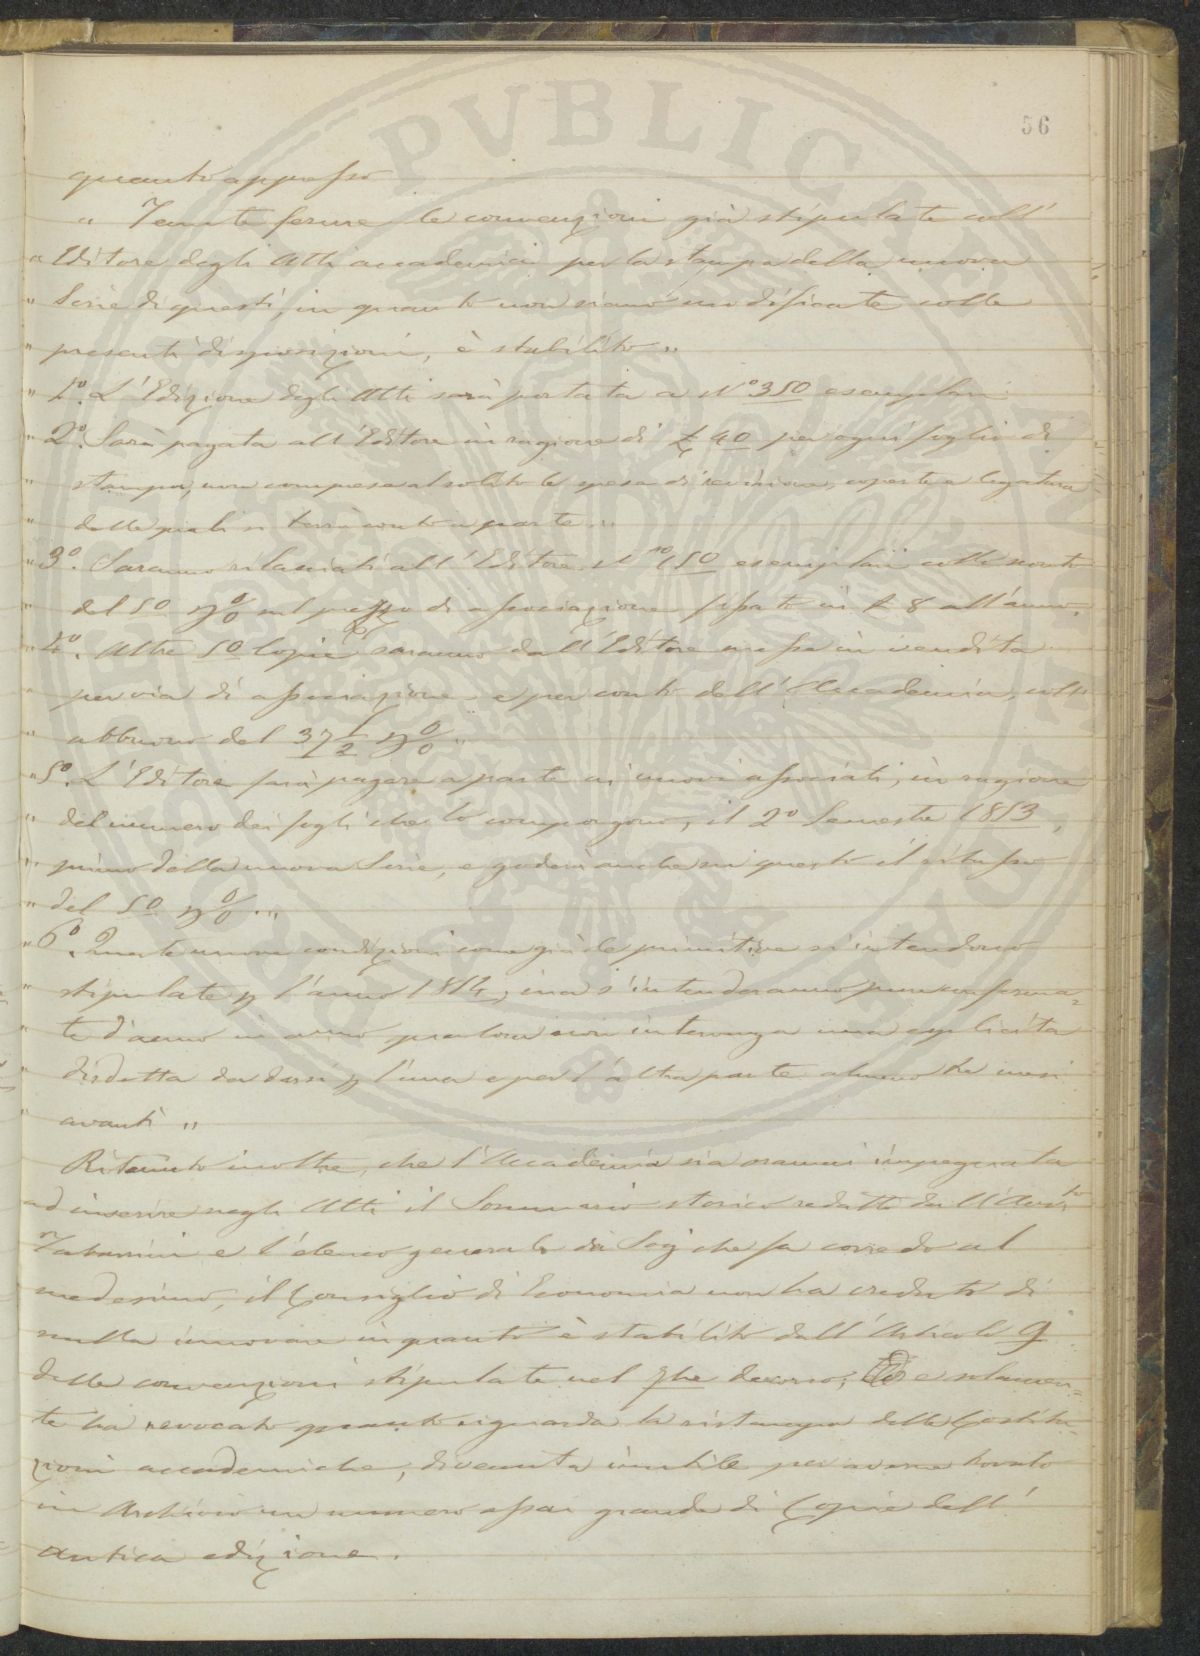 56
quanto appresso
" Tenute ferme le convenzioni già stipulate coll'
" Editore degli Atti accademici per la stampa della nuova
" Serie di questi, in quanto non siano modificate colle
" presenti disposizioni, è stabilito "
" 1º. L'Edizione degli Atti sarà portata a Nº 350 esemplari
" 2º. Sarà pagata all'Editore in ragione di £ 40 per ogni foglio di
" stampa, non compresa al solito le spese di revisione, coperte e legatura
" delle quali si terrà conto a parte "
" 3º. Saranno rilasciati all'Editore Nº 150 esemplari collo sconto
" del 50 p% sul prezzo di associazione fissato in £ 8 all'anno.
" 4º. Altre 50 Copie saranno dall'Editore messe in vendita
" per via di associazione e per conto dell'Accademia, coll'
" abbuono del 37 1/2 p% "
" 5º. L'Editore farà pagare a parte ai nuovi associati, in ragione
" del numero dei fogli che lo compongono, il 2º Semestre 1853,
" primo della nuova Serie, e goderà anche su questo il rilasso
" del 50 p% "
" 6º. Queste nuove condizioni come già le primitive si intendono
" stipulate p l'anno 1854, ma s'intenderanno pure conferma=
" te d'anno in anno qualora non intervenga una esplicita
" disdetta da darsi p l'una e per l'altra parte almeno tre mesi
" avanti "
Ritenuto inoltre, che l'Accademia sia oramai impegnata
ad inserire negli Atti il Sommario storico redatto dall'Avvto
Tabarrini e l'elenco generale dei Soci che fa corredo al
medesimo, il Consiglio di Economia non ha creduto di
nulla innovare in quanto è stabilito dall'Articolo 9
delle convenzioni stipulate nel decorso; e solamen=
te ha revocato quanto riguarda la ristampa delle Costitu=
zioni accademiche, divenuta inutile per averne trovato
in Archivio un numero assai grande di Copie dell'
antica edizione.
PVBLICAE